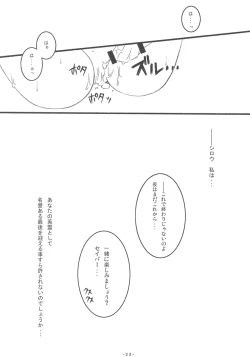 は…っ
ズル…
ポタ
ポタ
――シロウ 私は…
――これで終わりじゃないのよ
夜はまだこれから…
一緒に楽しみましょう？
セイバー…
クス
クス
あなたの英霊として
名誉ある最後を迎える事すら許されないのでしょうか…
- 23 -